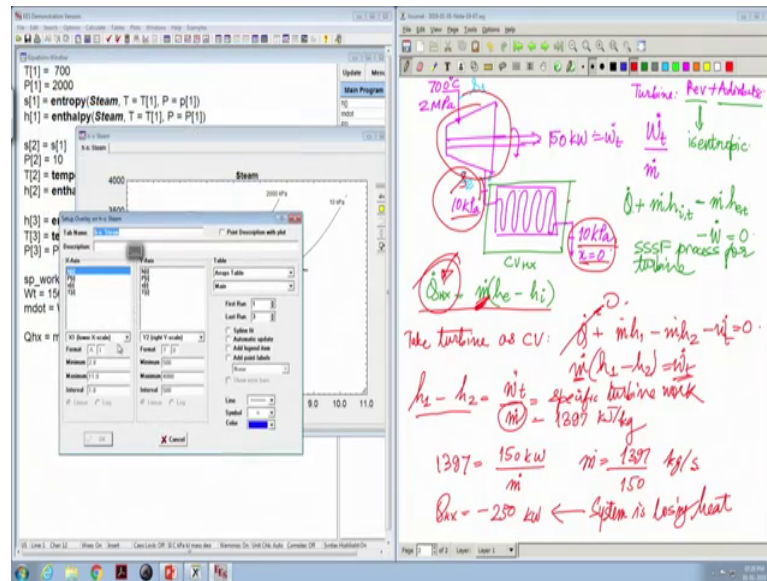 EES Demonstration Version
File Edit Search Options Calculate Tables Plots Windows Help Examples
Equations Window
T[1] = 700
P[1] = 2000
s[1] = entropy(Steam, T = T[1], P = p[1])
h[1] = enthalpy(Steam, T = T[1], P = P[1])
s[2] = s[1]
P[2] = 10
T[2] = temp
h[2] = entha
h[3] = e
T[3] = te
P[3] = P
sp_work
Wt = 15
mdot =
Qhx = m
Update Menu
Main Program
mdot
h-s: Steam
Steam
4000
2000 kPa
10 kPa
9.0 10.0 11.0
Setup Overlay on h-s: Steam
Tab Name h-s: Steam
Print Description with plot
Description
X-Axis
Y-Axis
Table
Arrays Table
Main
First Run 1
Last Run 3
X1 (lower X-scale)
Y2 (right Y-scale)
Spline fit
Automatic update
Add legend item
Add point labels
None
Show error bars
Format A 1
Format F 0
Minimum 2.0
Minimum 500
Maximum 11.0
Maximum 4000
Interval 1.0
Interval 500
Linear Log
Linear Log
Line
Symbol
Color
OK
Cancel
File Edit View Page Tools Options Help
700°C h1
2 MPa
Turbine: Rev + Adiabatic
isentropic
150 kW = Ẇt
Ẇt
ṁ
10kPa
Q̇ + ṁhi,t - ṁhe,t
- Ẇ = 0
SSSF process for
turbine
10kPa
x=0
CVHX
Q̇HX = ṁ(he - hi)
Take turbine as CV: Q̇ + ṁh1 - ṁh2 - Ẇt = 0.
0
ṁ(h1 - h2) = Ẇt
h1 - h2 = Ẇt / ṁ = specific turbine work
= 1397 kJ/kg
1397 = 150 kW / ṁ ṁ = 1397 / 150 kg/s
QHX = -250 kW ← System is losing heat
Page 2 of 2 Layer: Layer 1